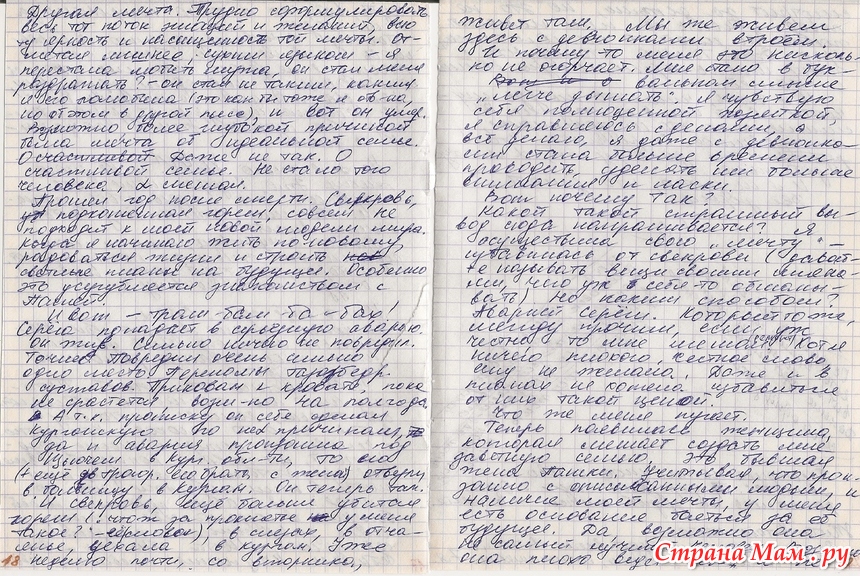 Другая мечта. Трудно сформулировать
весь тот поток эмоций и желаний, выс
ту верность и насыщенность той мечты. От-
метая лишнее, сухим языком - я
перестала любить мужа, он стал меня
раздражать? - он стал не таким, каким
я его полюбила (это как ты тоже,
но об этом в другой пьесе), и вот он умер.
Возможно более глубокой причиной
была мечта об идеальной семье.
О счастливой. Даже не так. О
счастливой семье. Не стало того
человека, мешал.
Прошел год после смерти. Свекровь,
подкошенная горем, совсем не
подходит к моей новой модели мира.
Когда я начинаю жить по новому,
радоваться жизни и строить
светлые планы на будущее. Особенно
это усугубляется знакомством с
Пашей.
И вот - трам-бам-ба-бах!
Серега попадает в серьезную аварию.
Он жив. Сильно ничего не повредил.
Точнее повредил очень сильно
одно место. Переломы тазобедр.
суставов. Прикован к кровати пока
не срастется возм-но на полгода.
А т.к. прописку он себе сделал
Курганскую по неск причинам,
да и авария произошла под
в Кур. обл-ти, то его
(+ еще брат, с женой) отвезли
в больницу в Курган. Он теперь там.
И свекровь, еще больше убитая
горем (: что ж за проклятье у меня
такое?), в слезах, в отча-
янье, уехала в Курган. Уже
неделю почти, со вторника,
18
живет там. Мы же живем
здесь с девчонками втроем.
И почему-то меня это нисколь-
ко не огорчает. Мне стало в бук-
вальном смысле
"легче дышать". Я чувствую
себя полноценной хозяйкой,
я справляюсь с делами, я
всё делаю, я даже с девчонка-
ми стала больше времени
проводить, уделять им больше
внимания и ласки.
Вот почему так?
Какой такой страшный вы-
вод сюда напрашивается? Я
осуществила свою "мечту" -
избавилась от свекрови (давай-
те называть вещи своими имена-
ми, чего уж себя-то обманы-
вать). Но каким способом?
Авария Серёги. Который тоже,
между прочим, если уж
честно то мне мешал. Хотя
ничего плохого, честное слово
ему не желала. Даже и в
планах не хотела избавиться
от них такой ценой.
Что же меня пугает.
Теперь появилась женщина,
которая мешает создать мне
заветную семью, это бывшая
жена Пашки. Учитывая, что прои-
зошло с описываемыми людьми, и
наличие моей мечты, у меня
есть основание бояться за её
будущее. Да, возможно она
не самый лучший
она плохо
Страна Мам.ру